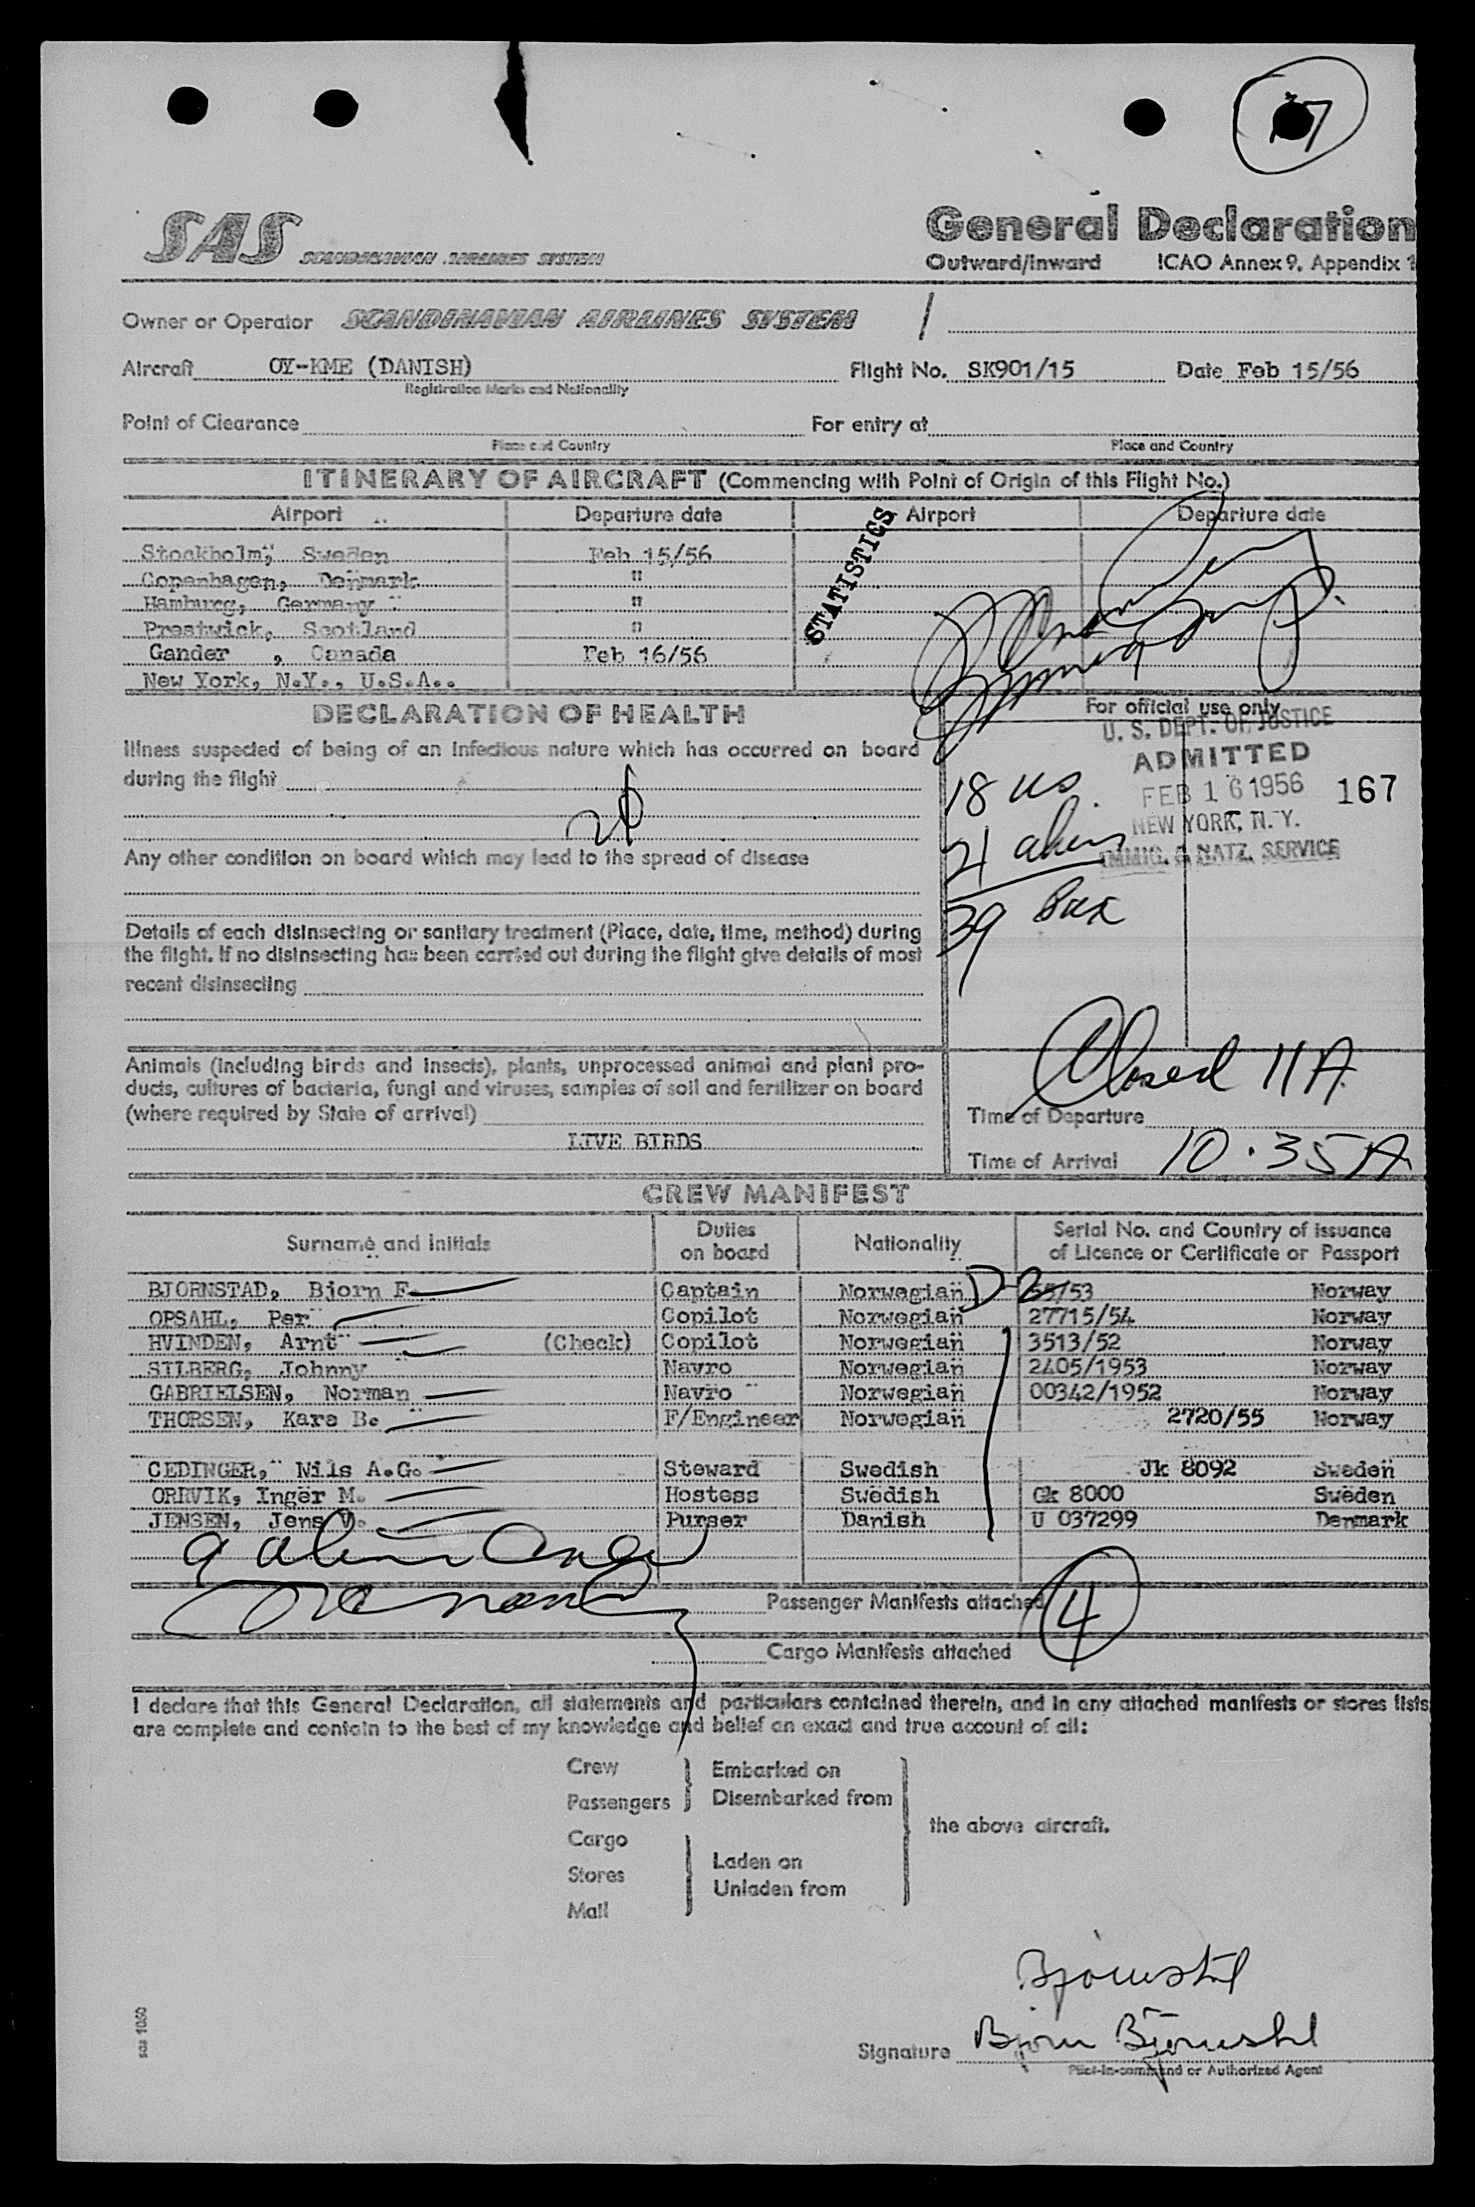 17
SAS SCANDINAVIAN AIRLINES SYSTEM
General Declaration
Outward/Inward ICAO Annex 9, Appendix 1
Owner or Operator SCANDINAVIAN AIRLINES SYSTEM
Aircraft OY-KME (DANISH) Flight No. SK901/15 Date Feb 15/56
Registration Marks and Nationality
Point of Clearance For entry at
Place and Country Place and Country
ITINERARY OF AIRCRAFT (Commencing with Point of Origin of this Flight No.)
Airport Departure date Airport Departure date
STATISTICS
Stockholm, Sweden Feb 15/56
Copenhagen, Denmark "
Hamburg, Germany "
Prestwick, Scotland "
Gander , Canada Feb 16/56
New York, N.Y., U.S.A..
DECLARATION OF HEALTH
For official use only
Illness suspected of being of an infectious nature which has occurred on board
during the flight
Any other condition on board which may lead to the spread of disease
Details of each disinsecting or sanitary treatment (Place, date, time, method) during
the flight. If no disinsecting has been carried out during the flight give details of most
recent disinsecting
U. S. DEPT. OF JUSTICE
ADMITTED
FEB 16 1956 167
NEW YORK, N. Y.
IMMIG. & NATZ. SERVICE
18 US
21 alien
39 Pax
Animals (including birds and insects), plants, unprocessed animal and plant pro-
ducts, cultures of bacteria, fungi and viruses, samples of soil and fertilizer on board
(where required by State of arrival)
LIVE BIRDS
Closed 11A
Time of Departure
Time of Arrival 10.35A
CREW MANIFEST
Surname and Initials Duties on board Nationality Serial No. and Country of issuance of Licence or Certificate or Passport
BJORNSTAD, Bjorn F. Captain Norwegian D-2 /53 Norway
OPSAHL, Per Copilot Norwegian 27715/54 Norway
HVINDEN, Arnt (Check) Copilot Norwegian 3513/52 Norway
SILBERG, Johnny Navro Norwegian 2405/1953 Norway
GABRIELSEN, Norman Navro Norwegian 00342/1952 Norway
THORSEN, Kare B. F/Engineer Norwegian 2720/55 Norway
CEDINGER, Nils A.G. Steward Swedish Jk 8092 Sweden
ORRVIK, Inger M. Hostess Swedish Gk 8000 Sweden
JENSEN, Jens V. Purser Danish U 037299 Denmark
9 alien Crew
Passenger Manifests attached 4
Cargo Manifests attached
I declare that this General Declaration, all statements and particulars contained therein, and in any attached manifests or stores lists
are complete and contain to the best of my knowledge and belief an exact and true account of all:
Crew
Passengers
Embarked on
Disembarked from
Cargo
Stores
Mail
Laden on
Unladen from
the above aircraft.
Bjørnstad
Signature Bjørn Bjørnstad
Pilot-in-command or Authorized Agent
sas 1050